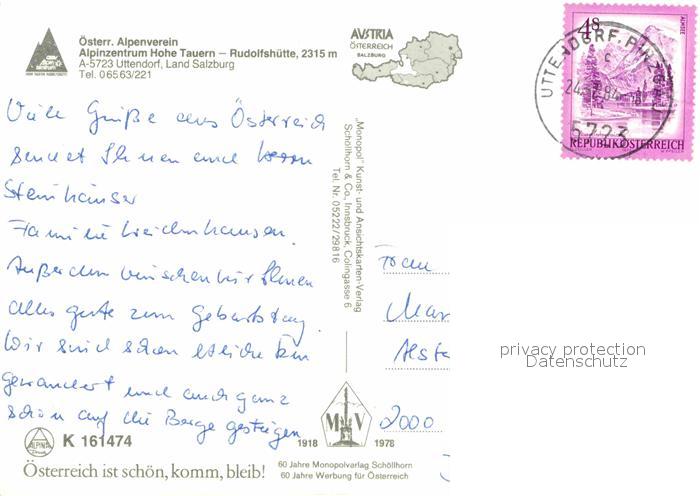 Österr. Alpenverein
Alpinzentrum Hohe Tauern – Rudolfshütte, 2315 m
A-5723 Uttendorf, Land Salzburg
Tel. 0 65 63/221
AUSTRIA
ÖSTERREICH
SALZBURG
4S
UTTENDORF, PINZGAU
5723
REPUBLIK ÖSTERREICH
Viele Grüße aus Österreich
sendet Ihnen und Herrn
Steinhäuser
Familie
Außerdem wünschen wir Ihnen
alles gute zum Geburtstag.
Wir sind schon etliche km
gewandert und auch ganz
schön auf die Berge gestiegen
„Monopol" Kunst- und Ansichtskarten-Verlag
Schöllhorn & Co., Innsbruck, Colingasse 6
Tel. Nr. 05222/29816
Frau
Mar
Alste
2000
privacy protection
Datenschutz
ALPINA
K 161474
1918 MV 1978
Österreich ist schön, komm, bleib!
60 Jahre Monopolverlag Schöllhorn
60 Jahre Werbung für Österreich